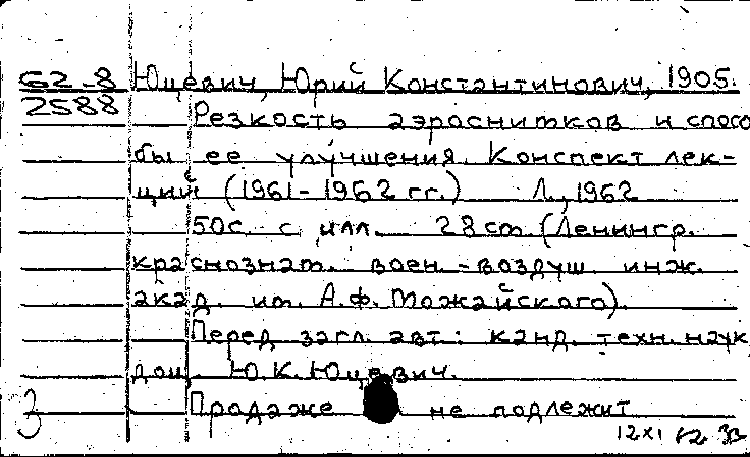 62-8 Юцевич, Юрий Константинович, 1905.
2588 Резкость аэроснимков и спосо
бы ее улучшения. Конспект лек-
ций (1961-1962 гг.) Л., 1962
50с. с илл. 28 cm. (Ленингр.
краснознам. воен.-воздуш. инж.
акад. им. А.Ф. Можайского).
Перед загл. авт.: канд. техн. наук
доц. Ю.К. Юцевич.
Продаже не подлежит
3
12XI 62